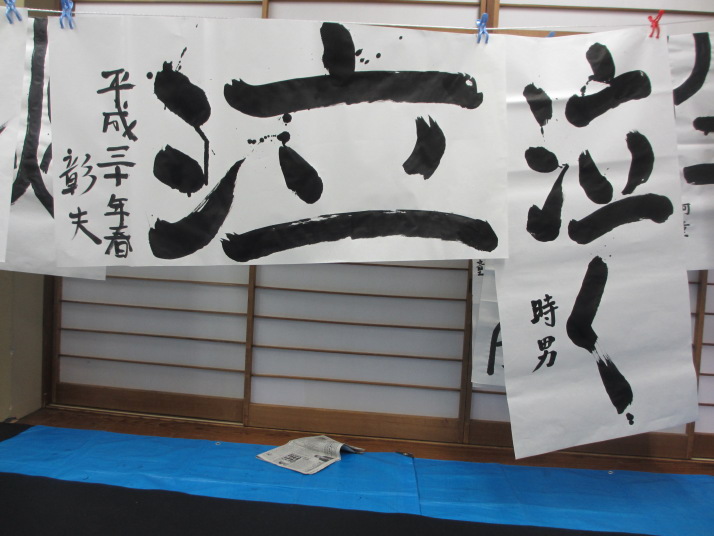 泣
平成三十年春
彰夫
泣く
時男